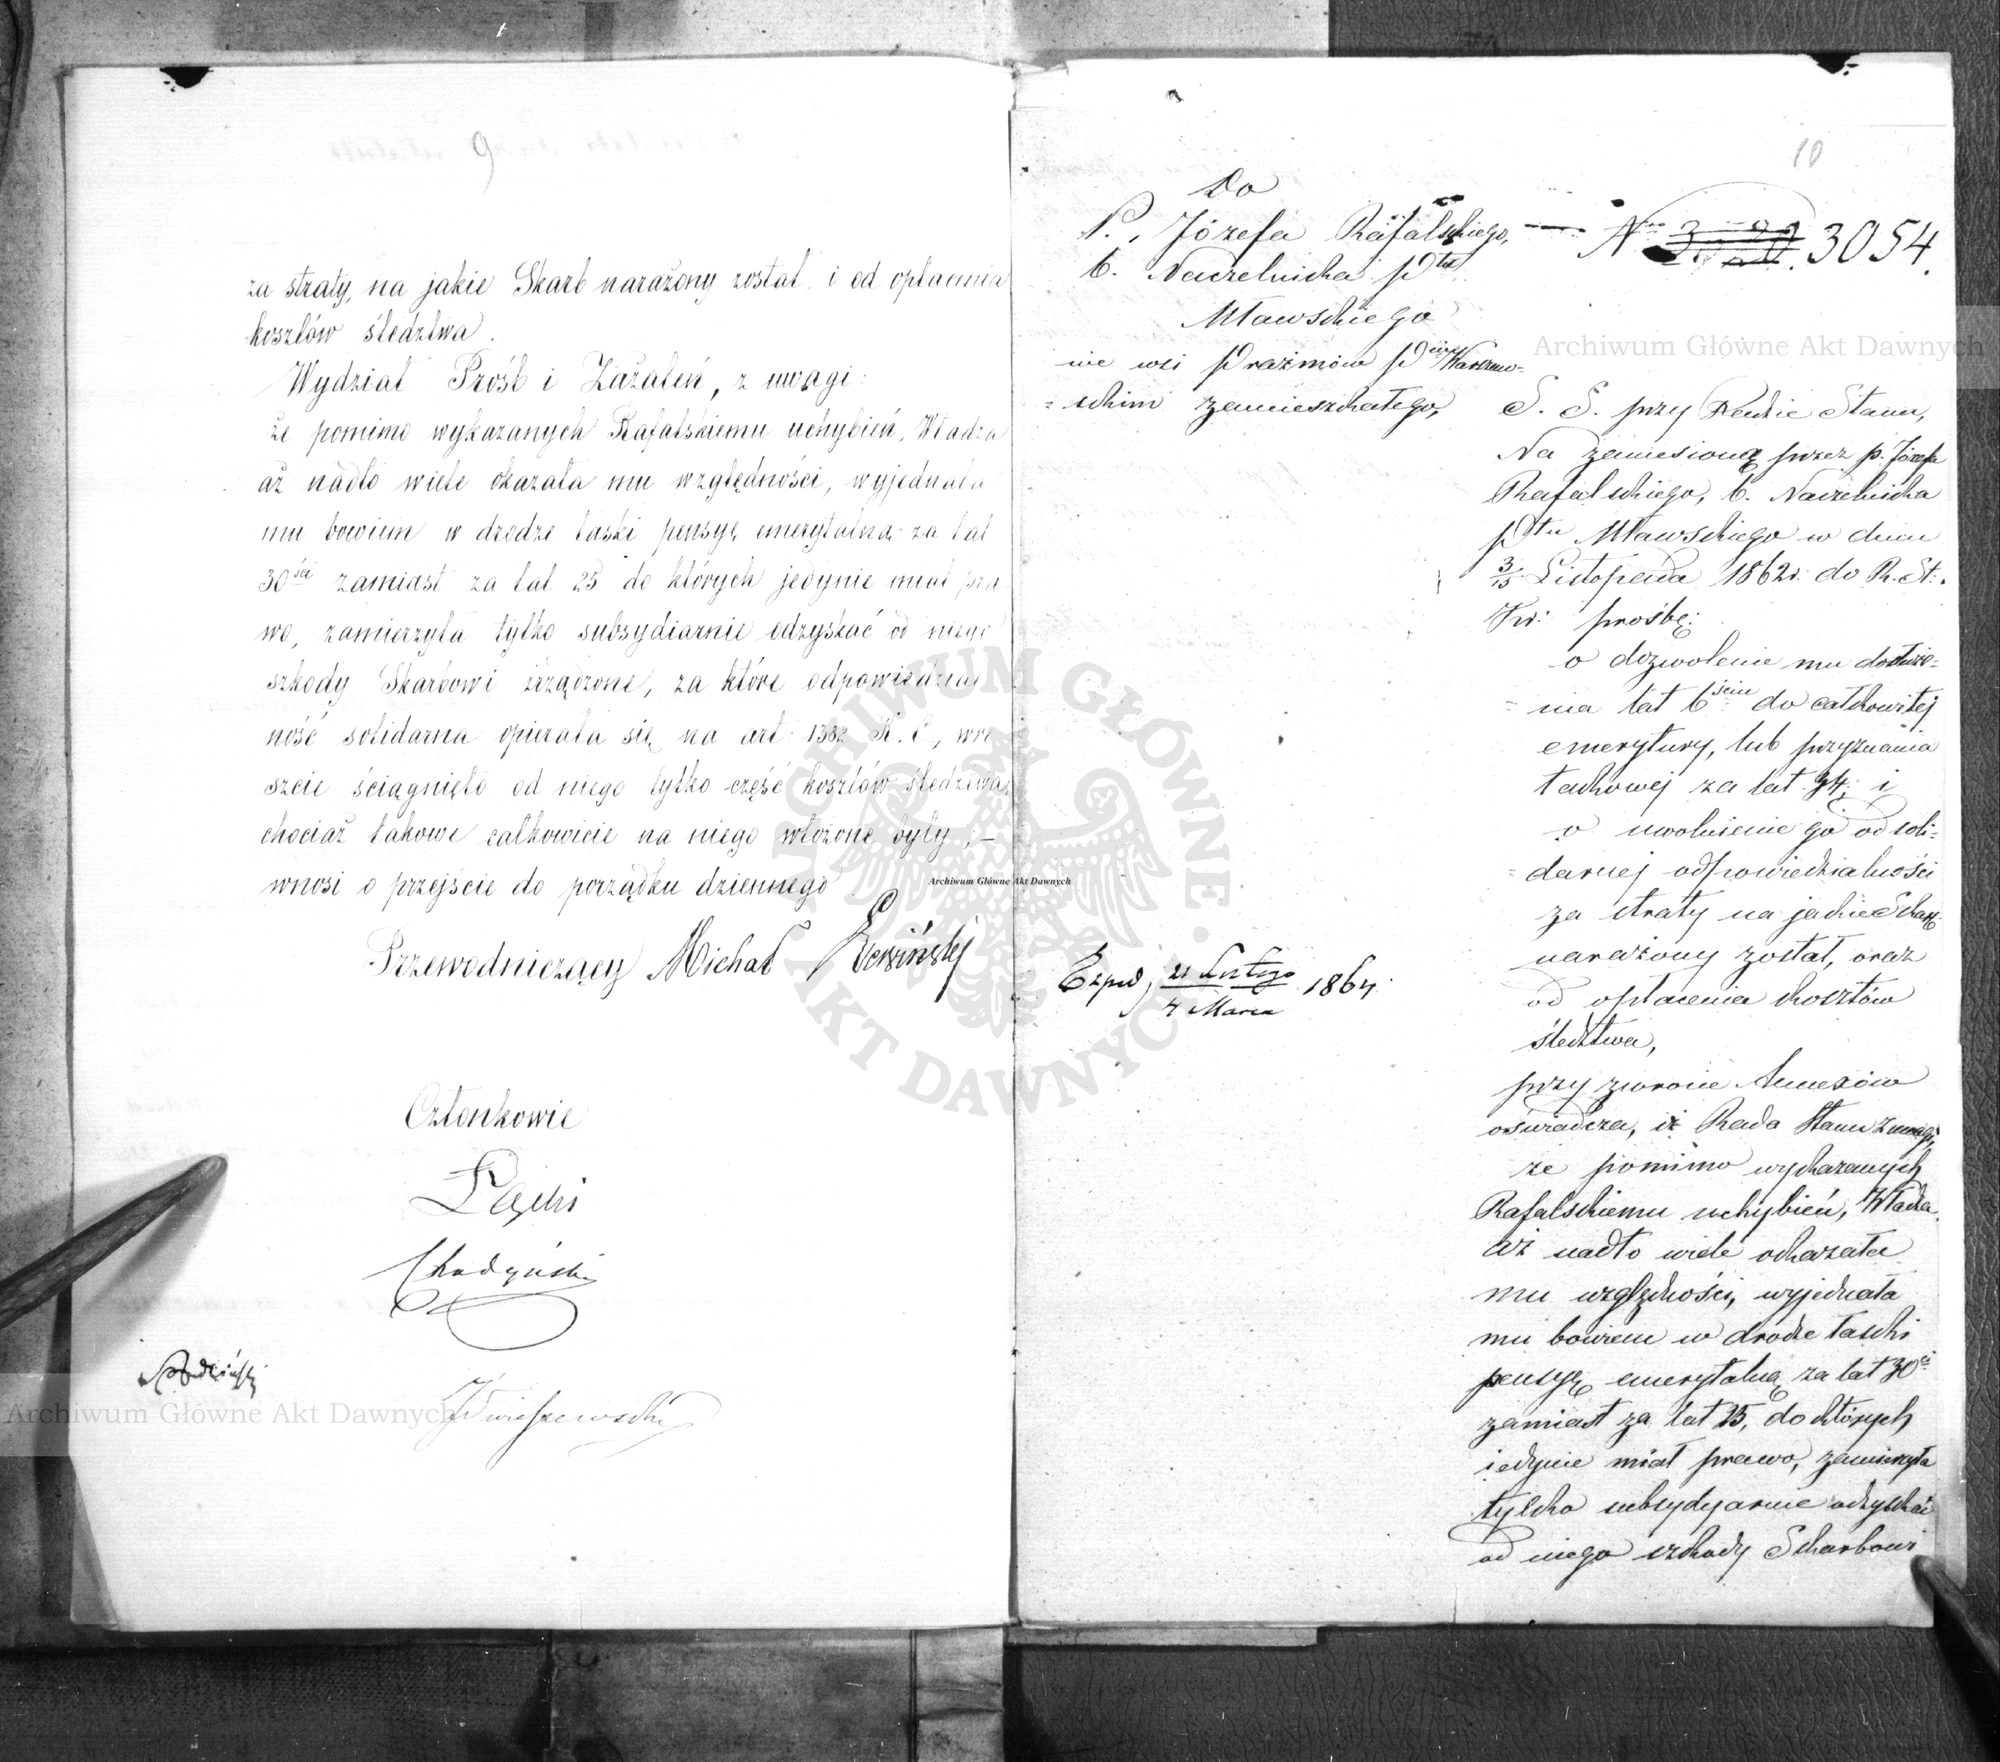 9
za straty, na jakie Skarb narażony został i od opłacenia
kosztów śledztwa.
Wydział Próśb i Zażaleń, z uwagi:
że pomimo wykazanych Rafalskiemu uchybień, Władza
aż nadto wiele okazała mu względności, wyjednała
mu bowiem w drodze łaski pensyę emerytalną za lat
30ści zamiast za lat 25 do których jedynie miał pra
wo, zamierzyła tylko subsydiarnie odzyskać od niego
szkody Skarbowi zrządzone, za które odpowiedzial
ność solidarna opierała się na art: 1382 K. C., wre
szcie ściągnięto od niego tylko część kosztów śledztwa,
chociaż takowe całkowicie na niego włożone były; —
wnosi o przejście do porządku dziennego
Przewodniczący Michał
Członkowie
Łęski
Chodyński
10
Do
P. Józefa Rafalskiego,
b. Naczelnika Ptu
Mławskiego
we wsi Prażmów Pcie Warszaw=
=skim zamieszkałego,
Nro 3054.
S. S. przy Radzie Stanu,
Na zaniesioną przez p. Józefa
Rafalskiego, b. Naczelnika
Ptu Mławskiego w dniu
3/15 Listopada 1862 r. do R. St:
Kr: prośbę:
o dozwolenie mu dosłuże=
=nia lat 6ściu do całkowitej
emerytury, lub przyznania
takowej za lat 34; i
o uwolnienie go od soli=
=darnej odpowiedzialności
za straty na jakie Skarb
narażony został, oraz
od opłacenia kosztów
śledztwa,
przy zwrocie Annexów
oświadcza, iż Rada Stanu z uwagi,
że pomimo wykazanych
Rafalskiemu uchybień, Władza
aż nadto wiele okazała
mu względności, wyjednała
mu bowiem w drodze łaski
pensyę emerytalną za lat 30ci
zamiast za lat 25, do których
iedynie miał prawo, zamierzyła
tylko subsydyarnie odzyskać
od niego szkody Skarbowi
Exped, 21 Lutego 1864
4 Marca
Archiwum Główne Akt Dawnych
Archiwum Główne Akt Dawnych
Archiwum Główne Akt Dawnych
ARCHIWUM GŁÓWNE AKT DAWNYCH